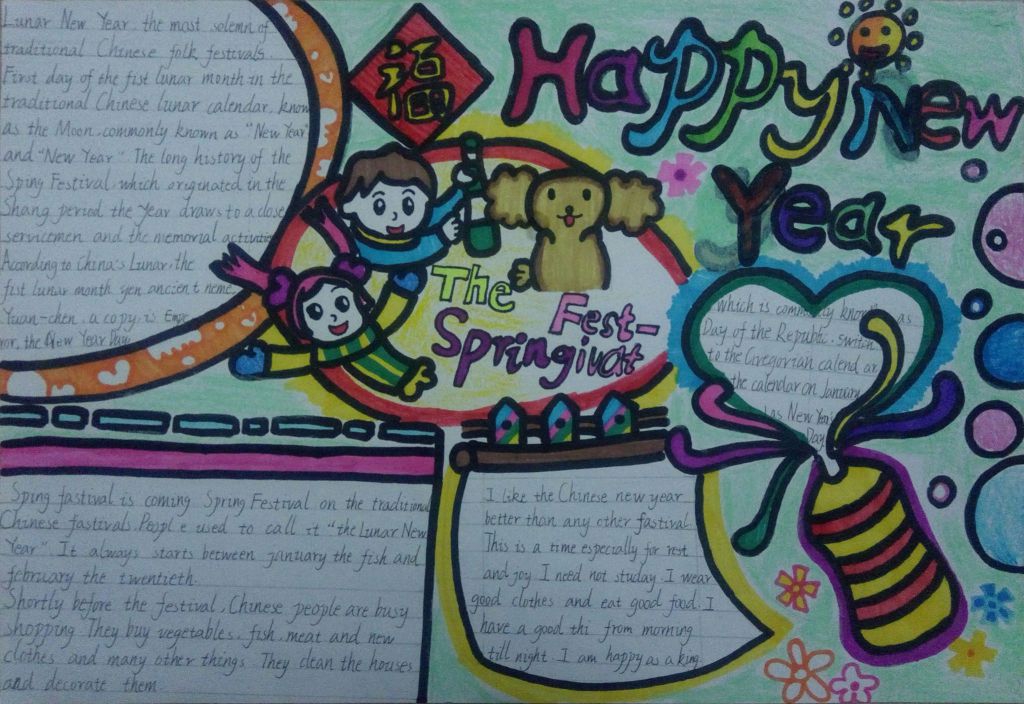 Lunar New Year, the most solemn of
traditional Chinese folk festivals.
First day of the fist lunar month in the
traditional Chinese lunar calendar, know
as the Moon, commonly known as "New Year"
and "New Year". The long history of the
Sping Festival, which originated in the
Shang period the Year draws to a close
servicemen and the memorial activitie
According to China's Lunar, the
fist lunar month yen ancient neme
Yuan-chen, a copy is Empe
ror, the New Year Day
福
Happy New
Year
The
Spring
Fest-
ivat
which is commonly known as
Day of the Republic. Switch
to the Gregorian calendar
the calendar on January
1 as New Year's
Day.
Sping fastival is coming Spring Festival on the traditional
Chinese fastivals. People used to call it "the Lunar New
Year". It always starts between january the fish and
february the twentieth.
Shortly before the festival, Chinese people are busy
shopping. They buy vegetables, fish, meat and new
clothes and many other things. They clean the houses
and decorate them
I like the Chinese new year
better than any other fastival.
This is a time especially for rest
and joy I need not studay. I wear
good clothes and eat good food. I
have a good thi from morning
till night. I am happy as a king.